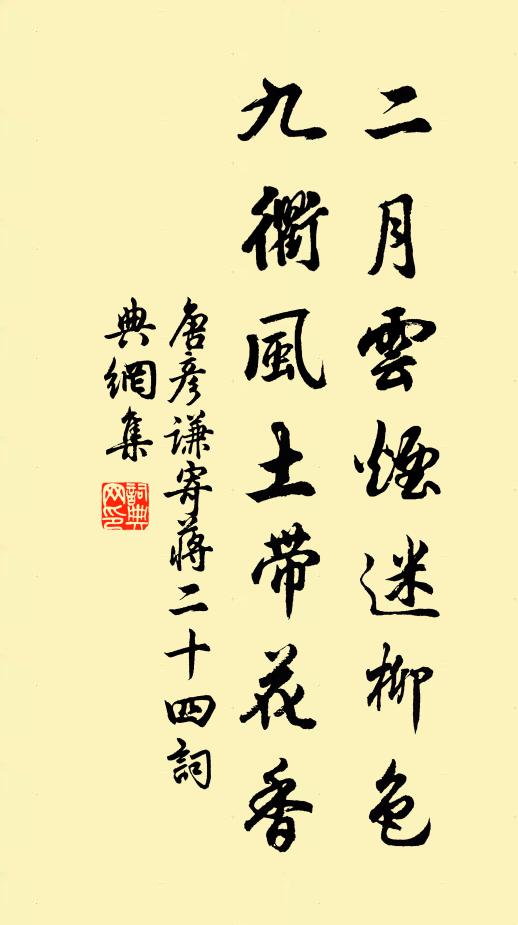 二月雲煙迷柳色
九衢風土帶花香
唐彥謙寄蔣二十四詞
典網集
詞典网印